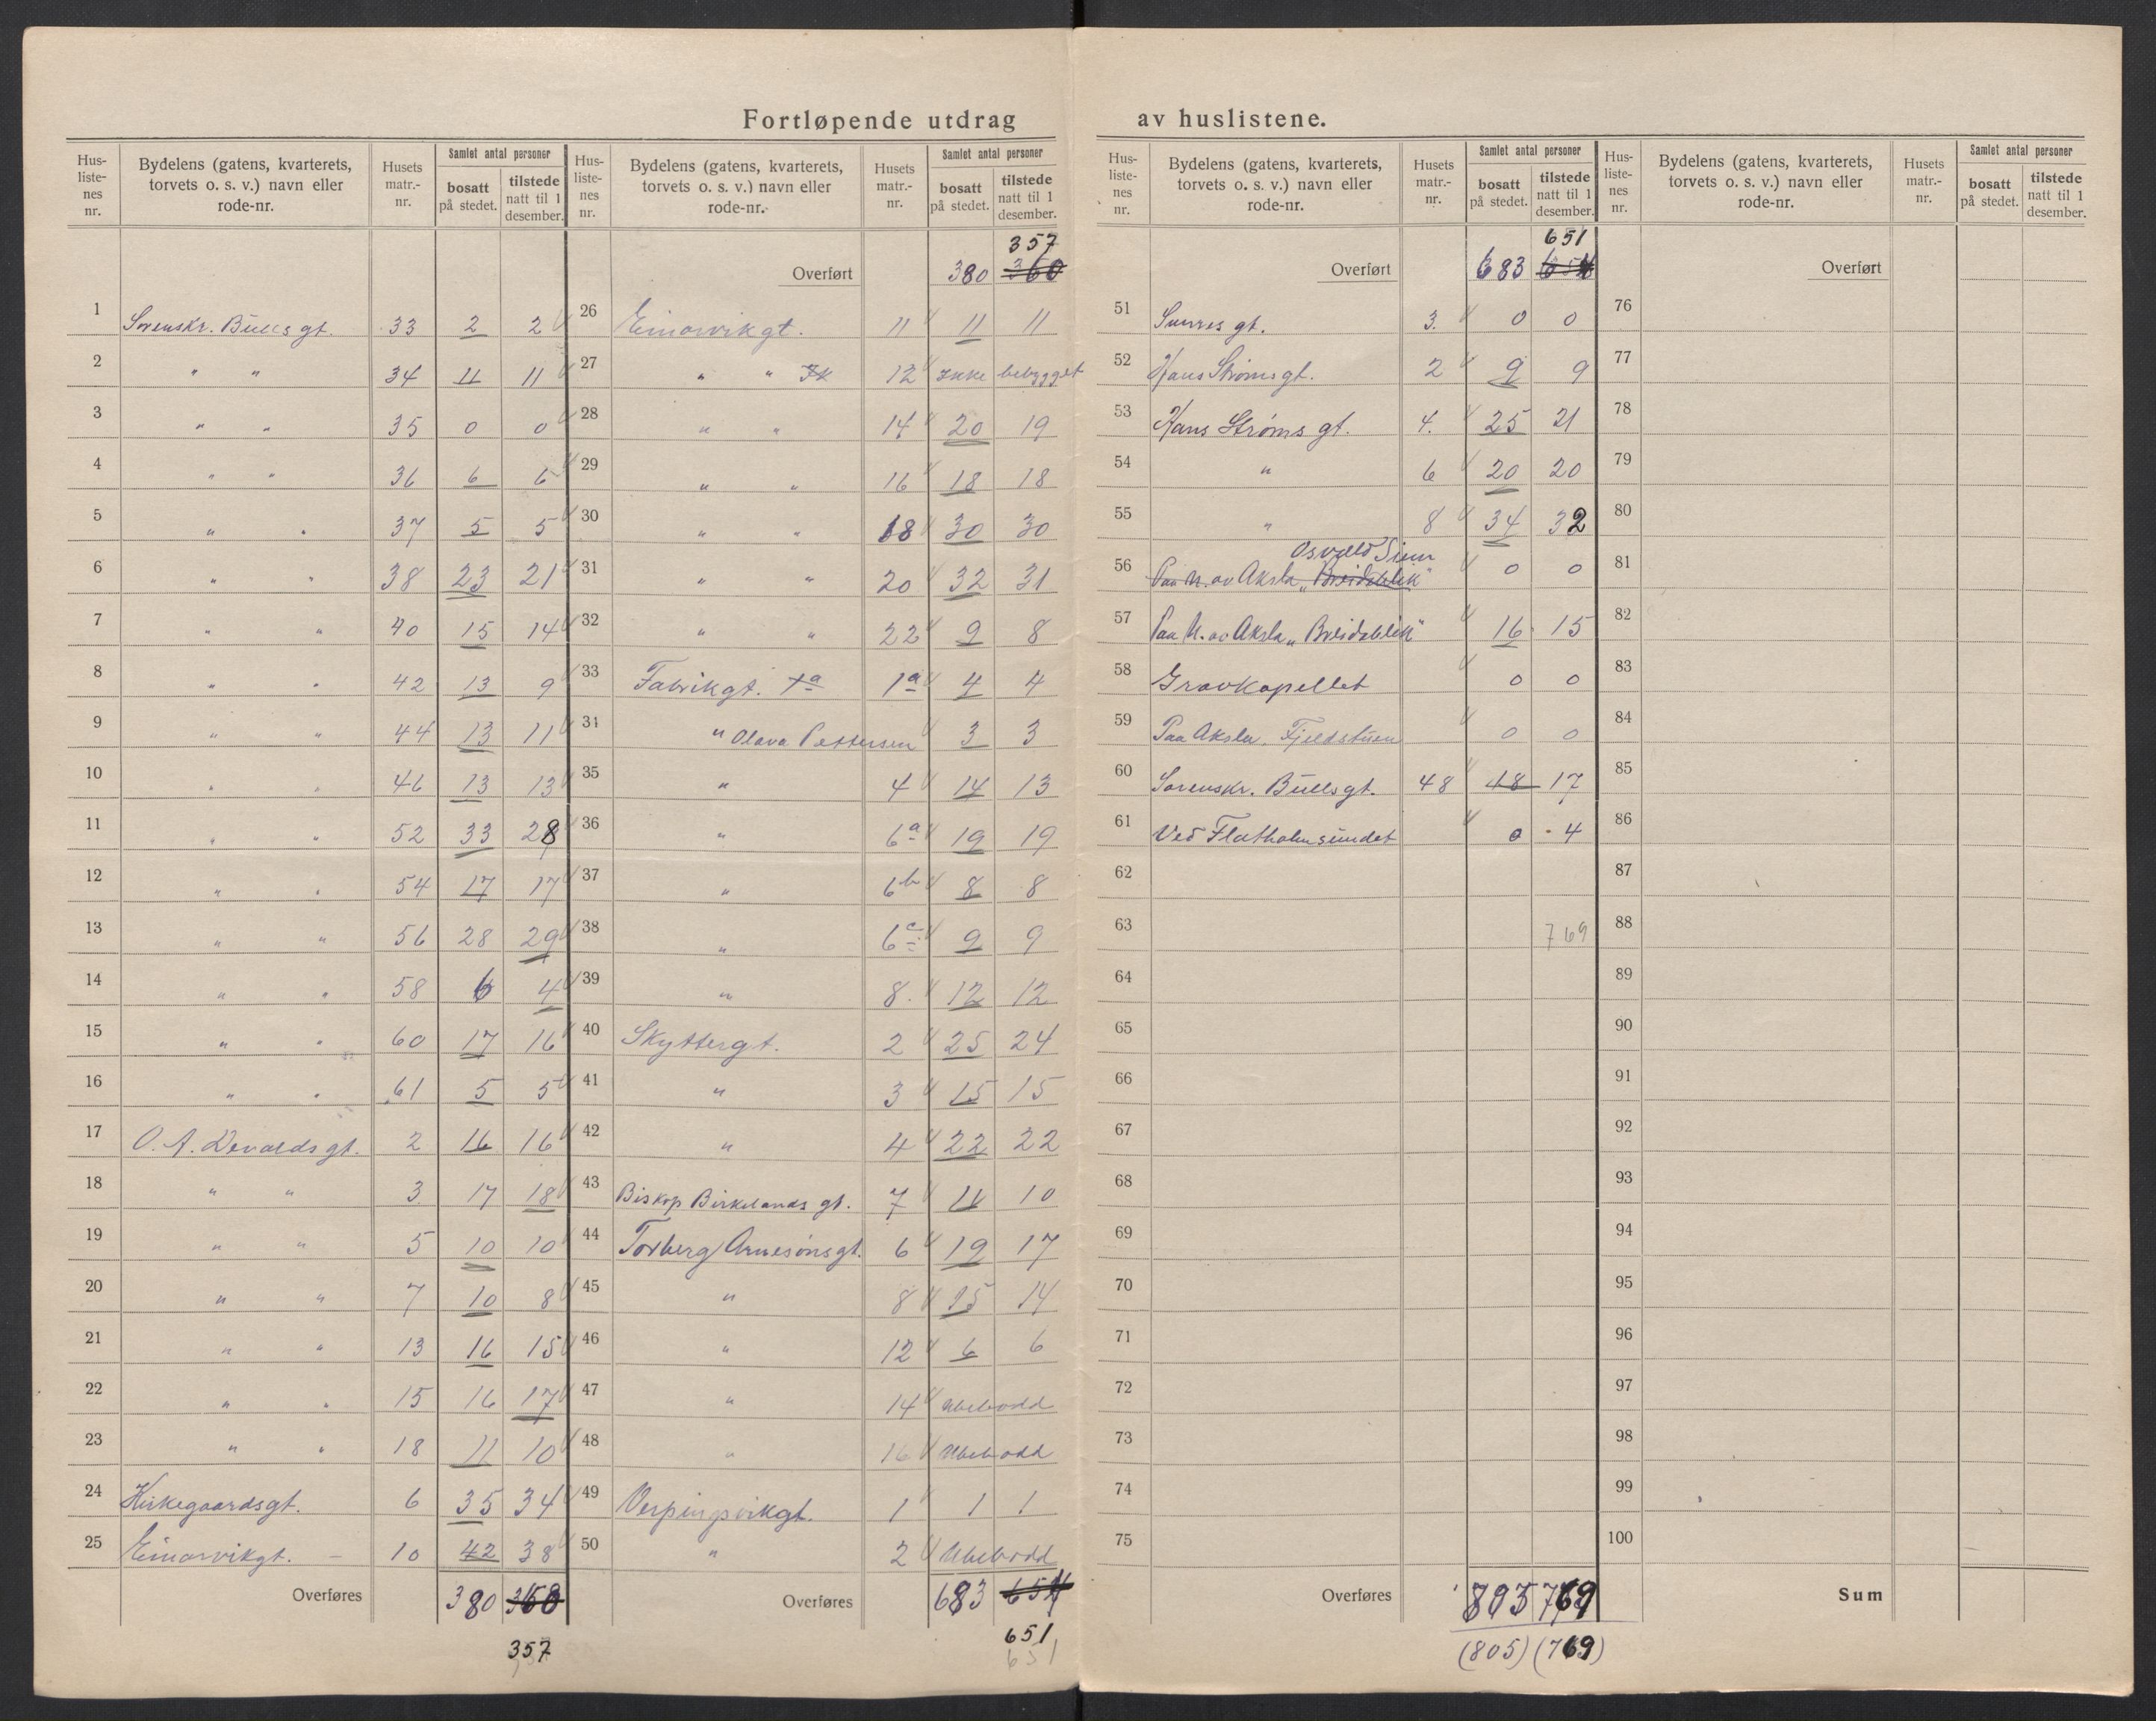 Fortløpende utdrag av huslistene.
Hus-listenes nr. | Bydelens (gatens, kvarterets, torvets o. s. v.) navn eller rode-nr. | Husets matr.-nr. | Samlet antal personer bosatt på stedet. | tilstede natt til 1 desember.
1 Sorenskr. Bulls gt. 33 2 2
2 " " 34 11 11
3 " " 35 0 0
4 " " 36 6 6
5 " " 37 5 5
6 " " 38 23 21
7 " " 40 15 14
8 " " 42 13 9
9 " " 44 13 11
10 " " 46 13 13
11 " " 52 33 28
12 " " 54 17 17
13 " " 56 28 29
14 " " 58 6 4
15 " " 60 17 16
16 " " 61 5 5
17 O. A. Devolds gt. 2 16 16
18 " " 3 17 18
19 " " 5 10 10
20 " " 7 10 8
21 " " 13 16 15
22 " " 15 16 17
23 " " 18 11 10
24 Kirkegaardsgt. 6 35 34
25 Einarvikgt. – 10 42 38
Overføres 380 360
357
Hus-listenes nr. | Bydelens (gatens, kvarterets, torvets o. s. v.) navn eller rode-nr. | Husets matr.-nr. | Samlet antal personer bosatt på stedet. | tilstede natt til 1 desember.
357
Overført 380 360
26 Einarvikgt. 11 11 11
27 " " 12 Ikke bebygget
28 " " 14 20 19
29 " " 16 18 18
30 " " 18 30 30
31 " " 20 32 31
32 " " 22 9 8
33 Fabrikgt. 1a 1a 4 4
31 " Olava Pettersen 3 3
35 " 4 14 13
36 " 6a 19 19
37 " 6b 8 8
38 " 6c 9 9
39 " 8. 12 12
40 Skyttergt. 2 25 24
41 " 3 15 15
42 " 4 22 22
43 Biskop Birkelands gt. 7 11 10
44 Torberg Arnesøns gt. 6 19 17
45 " 8 15 14
46 " 12 6 6
47 " 14 Ubebodd
48 " 16 Ubebodd
49 Verpingsvikgt. 1 1 1
50 " 2 Ubebodd
Overføres 683 654
651
651
Hus-listenes nr. | Bydelens (gatens, kvarterets, torvets o. s. v.) navn eller rode-nr. | Husets matr.-nr. | Samlet antal personer bosatt på stedet. | tilstede natt til 1 desember.
651
Overført 683 654
51 gt. 3. 0 0
52 Hans Strømsgt. 2 9 9
53 Hans Strøms gt. 4. 25 21
54 " 6 20 20
55 " 8 34 32
Osvald
56 Paa N. av Aksla „Breidablik" 0 0
57 Paa N. av Aksla „Breidablik" 16 15
58 Gravkapellet 0 0
59 Paa Aksla. Fjeldstuen 0 0
60 Sorenskr. Bullsgt. 48 18 17
61 Ved Flatholmsundet 0 4
62
63 769
64
65
66
67
68
69
70
71
72
73
74
75
Overføres 805 769
(805) (769)
Hus-listenes nr. | Bydelens (gatens, kvarterets, torvets o. s. v.) navn eller rode-nr. | Husets matr.-nr. | Samlet antal personer bosatt på stedet. | tilstede natt til 1 desember.
Overført
76
77
78
79
80
81
82
83
84
85
86
87
88
89
90
91
92
93
94
95
96
97
98
99
100
Sum